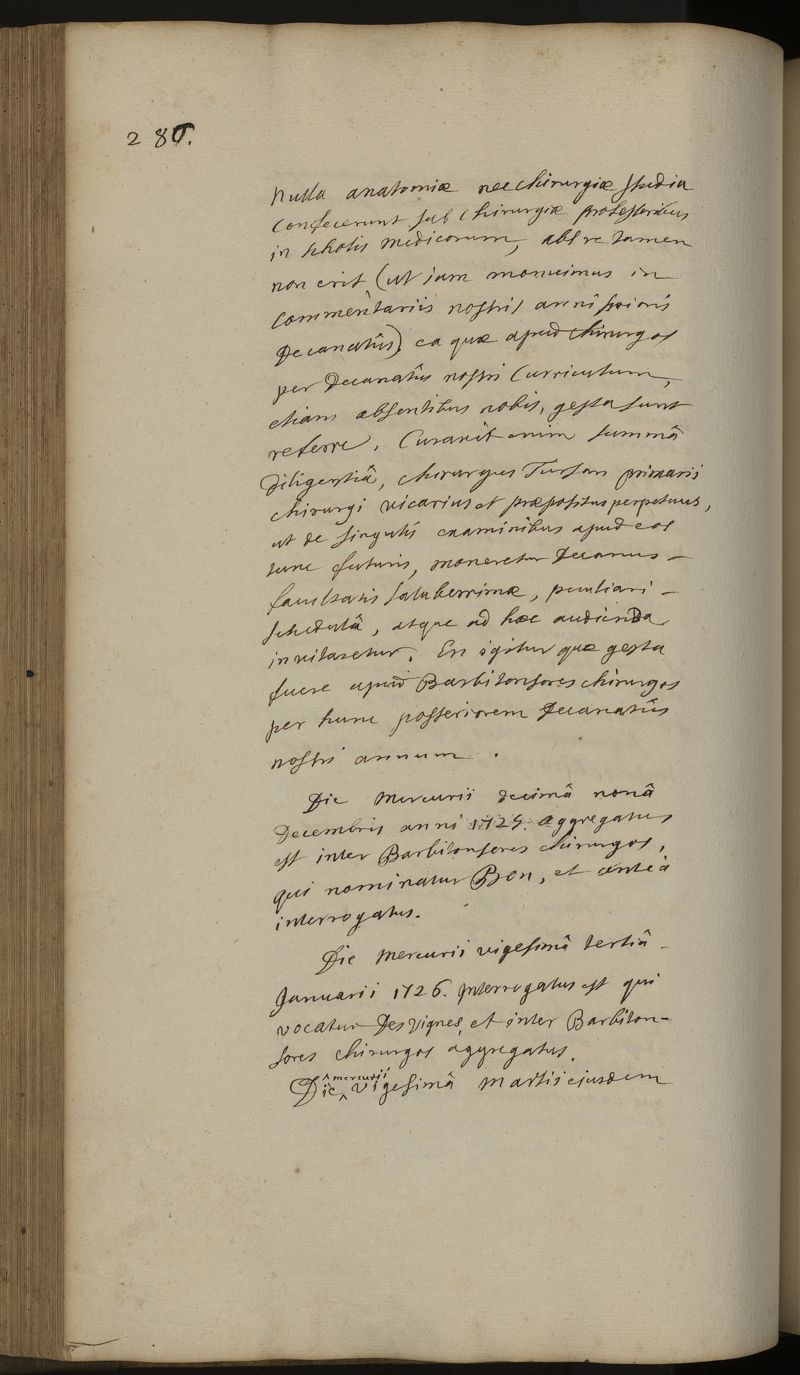 280.
nulla anatomiæ nec chirurgiæ studia
confecerunt sub chirurgiæ professoribus
in scholis medicorum, abs re tamen
non erit (ut jam monuimus in
commentariis nostri anni prioris
Decanatûs) ea quæ apud chirurgos
per Decanatûs nostri curriculum,
etiam absentibus nobis, gesta sunt
referre. Curavit enim summâ
diligentiâ, chirurgus Tursan primarii
chirurgi vicarius et præpositus perpetuus,
ut de singulis examinibus apud eos
tunc futuris, moneretur Decanus
facultatis saluberrimæ, peculiari
schedulâ, atque ad hæc audienda
invitaretur. En igitur quæ gesta
fuere apud Barbitonsores chirurgos
per hunc posteriorem Decanatûs
nostri annum.
Die Mercurii decimâ nonâ
Decembris anni 1725. aggregatus
est inter Barbitonsores chirurgos,
qui nominatur Bon, et anteà
interrogatus.
Die mercurii vigesimâ tertiâ
Januarii 1726. interrogatus est qui
vocatur Des vignes, et inter Barbiton-
sores chirurgos aggregatus.
Die mercurii vigesimâ martii ejusdem